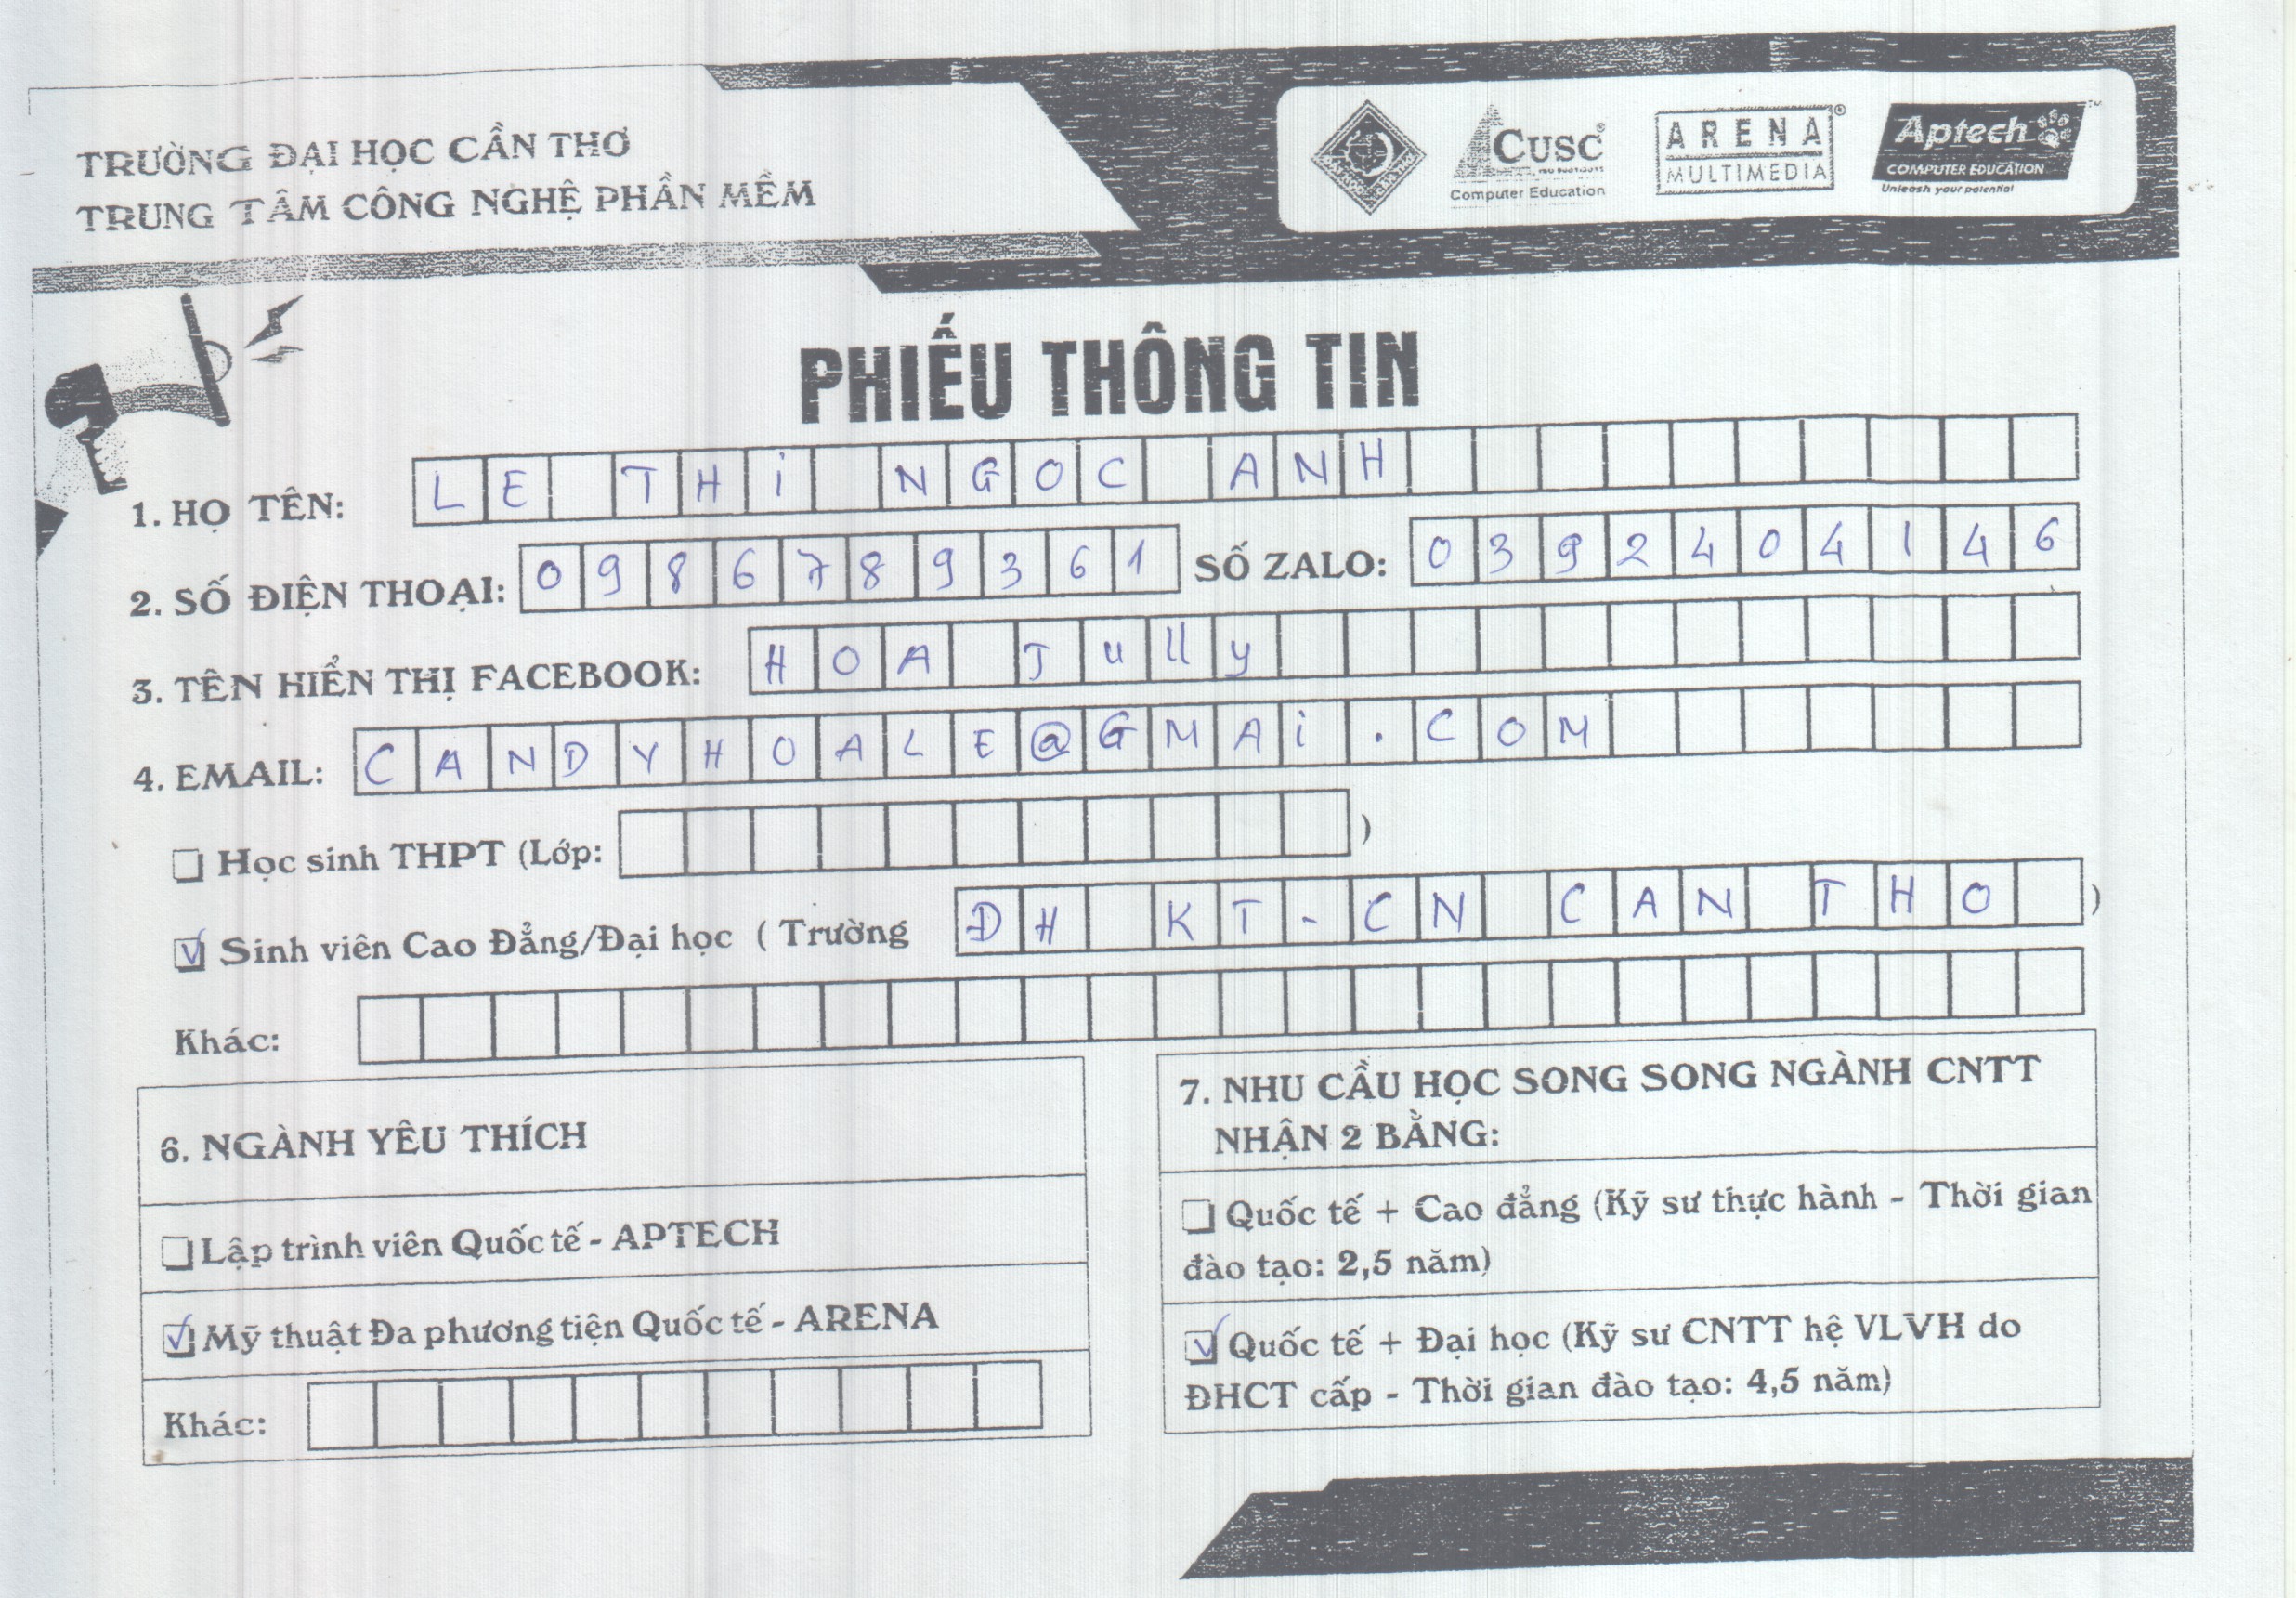 TRƯỜNG ĐẠI HỌC CẦN THƠ
TRUNG TÂM CÔNG NGHỆ PHẦN MỀM
CUSC
Computer Education
ARENA
MULTIMEDIA
Aptech
COMPUTER EDUCATION
Unleash your potential
PHIẾU THÔNG TIN
1. HỌ TÊN: LE THi NGOC ANH
2. SỐ ĐIỆN THOẠI: 0986789361 SỐ ZALO: 0392404146
3. TÊN HIỂN THỊ FACEBOOK: HOA Jully
4. EMAIL: CANDYHOALE@GMAi.COM
Học sinh THPT (Lớp: )
Sinh viên Cao Đẳng/Đại học ( Trường ĐH KT-CN CAN THO )
Khác:
6. NGÀNH YÊU THÍCH
Lập trình viên Quốc tế - APTECH
Mỹ thuật Đa phương tiện Quốc tế - ARENA
Khác:
7. NHU CẦU HỌC SONG SONG NGÀNH CNTT
NHẬN 2 BẰNG:
Quốc tế + Cao đẳng (Kỹ sư thực hành - Thời gian
đào tạo: 2,5 năm)
Quốc tế + Đại học (Kỹ sư CNTT hệ VLVH do
ĐHCT cấp - Thời gian đào tạo: 4,5 năm)